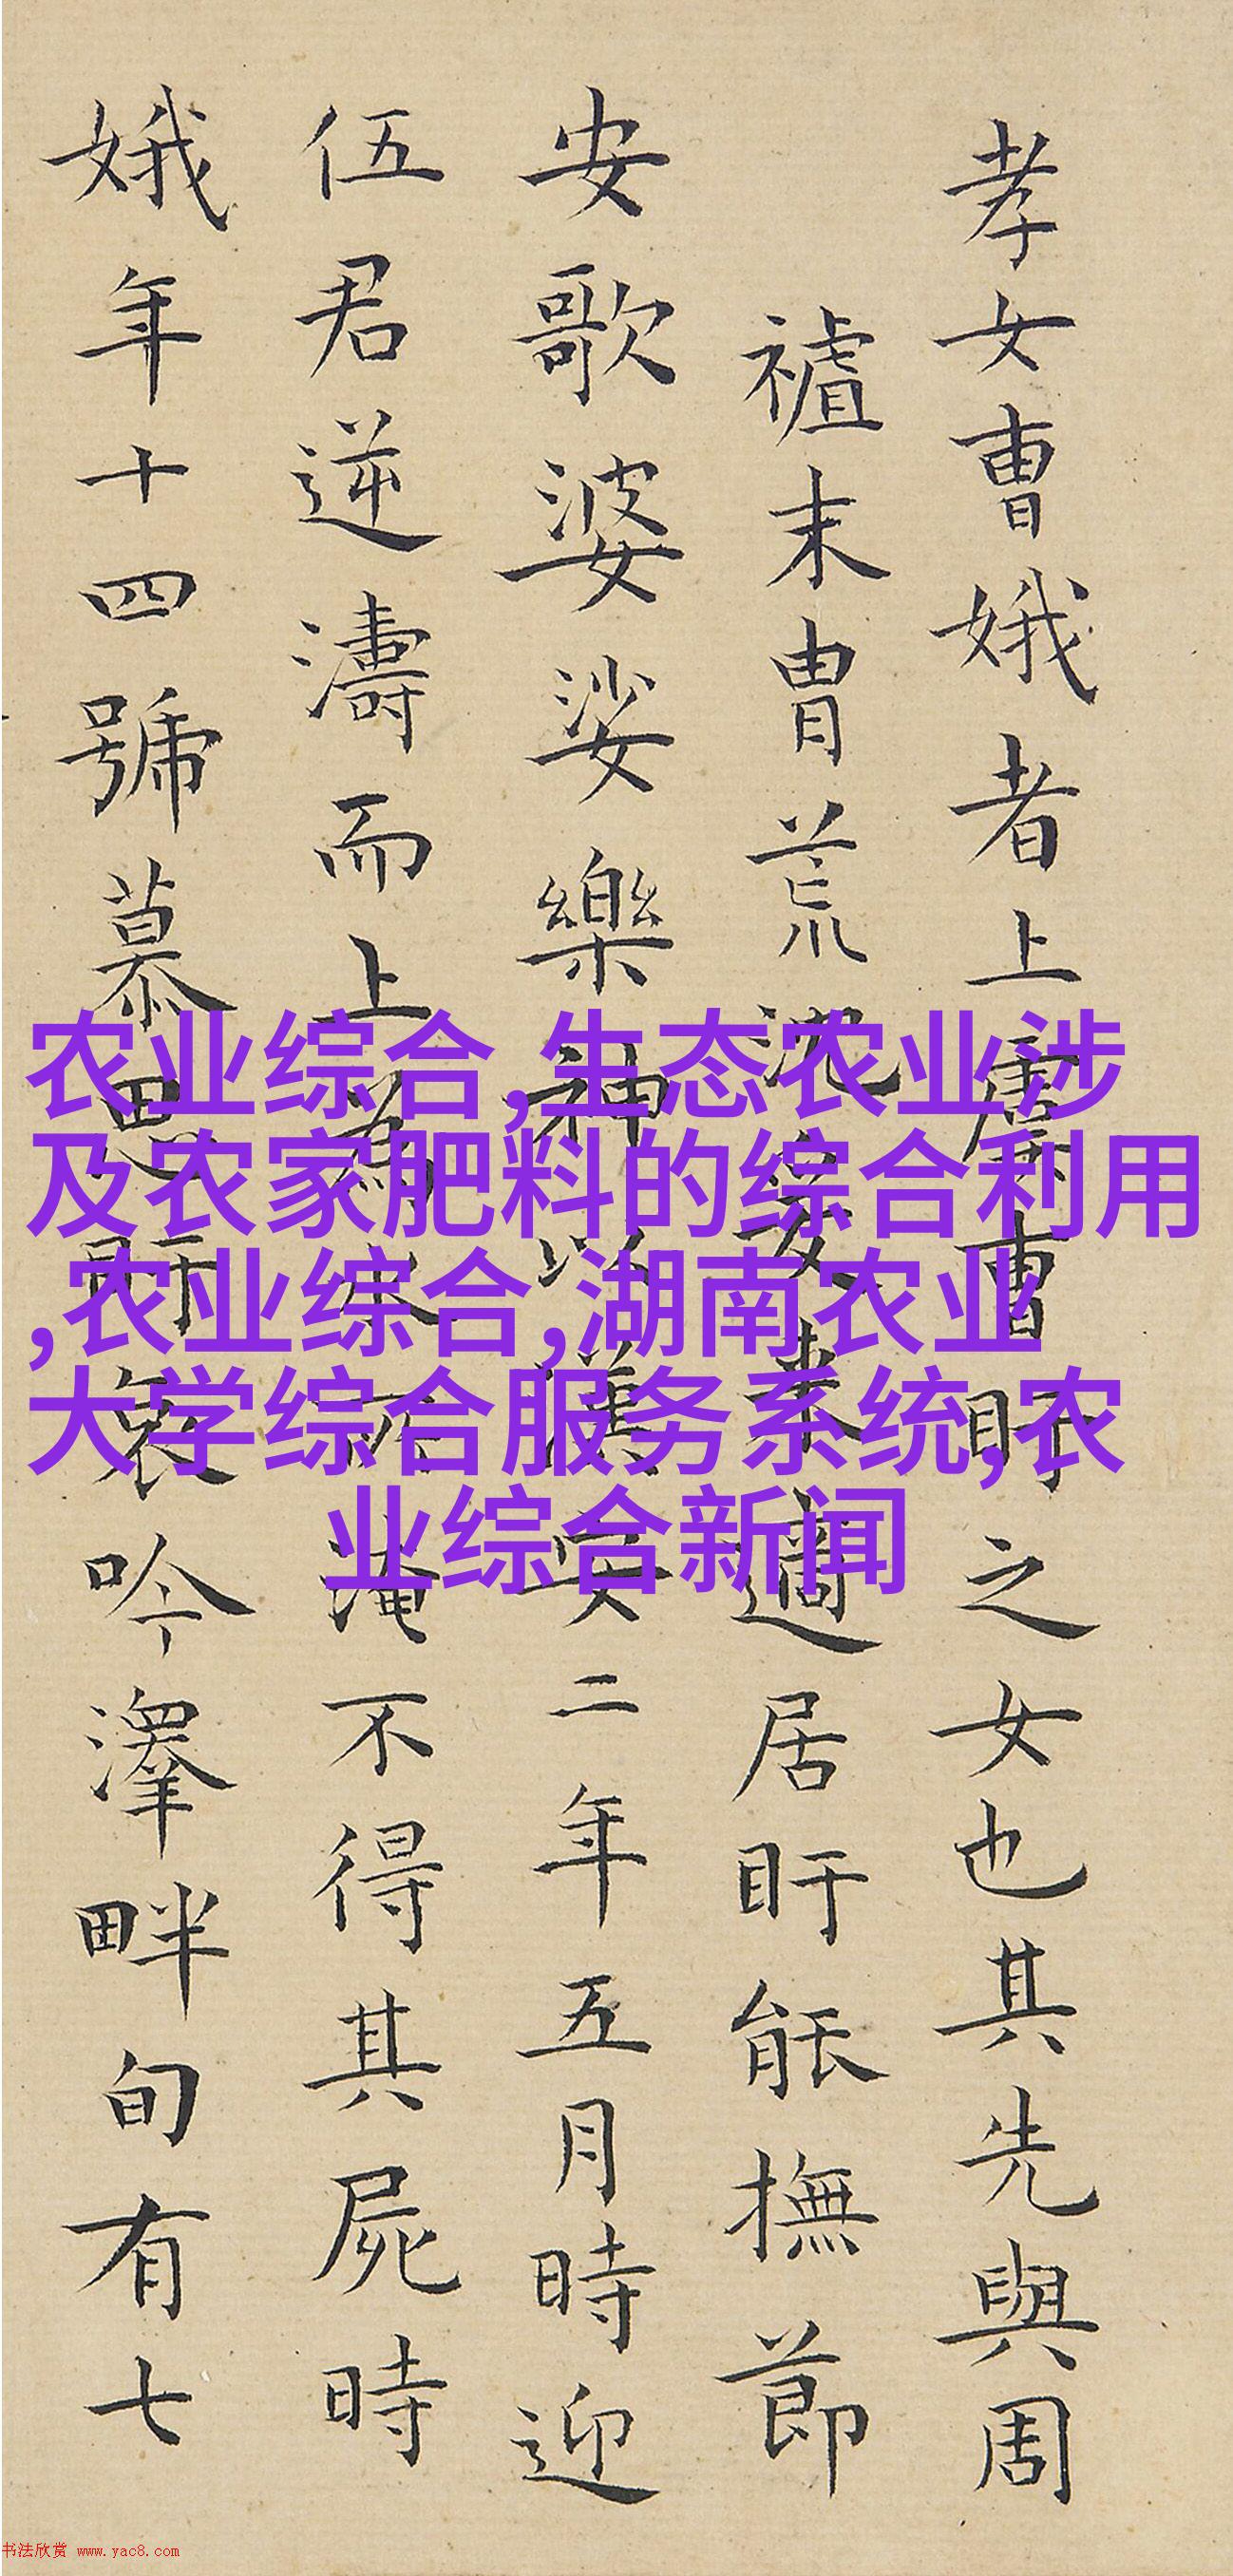 孝女曹娥者上虞曹盱之女也其先與周
末冑荒沉爰来適居盱能撫節
安歌婆娑樂神以漢安二年五月時迎
伍君逆濤而上為水所淹不得其屍時
娥年十四號慕思盱哀吟澤畔旬有七
农业综合,生态农业涉
及农家肥料的综合利用
,农业综合,湖南农业
大学综合服务系统,农
业综合新闻
书法欣赏 www.yac8.com